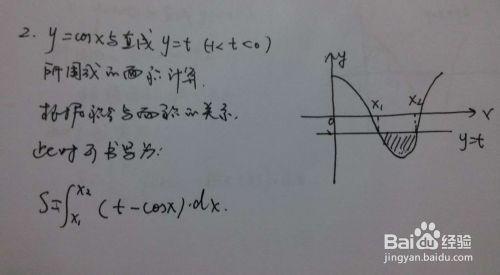 2. y=cosx与直线 y=t (-1<t<0)
所围成的面积计算.
根据积分与面积的关系.
此时可书写为:
S=∫x₁x₂ (t-cosx)·dx.
y
x₁
x₂
x
0
y=t
Baidu经验
jingyan.baidu.com